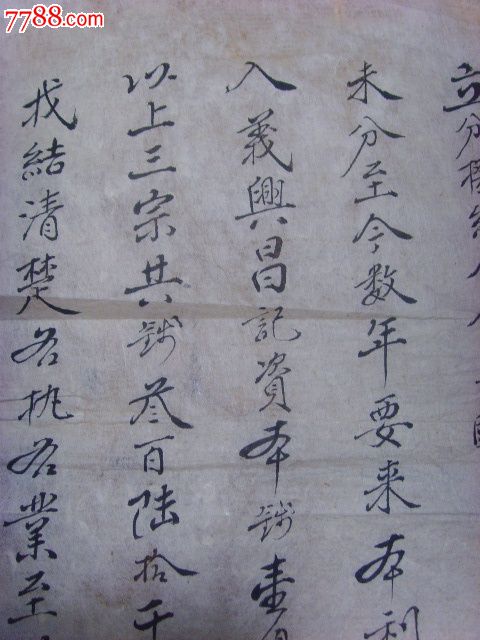 7788.com
立分
未分至今数年要来本利
入義興昌記資本錢壹百
以上三宗共錢叁百陸拾千
找結清楚各执各業至